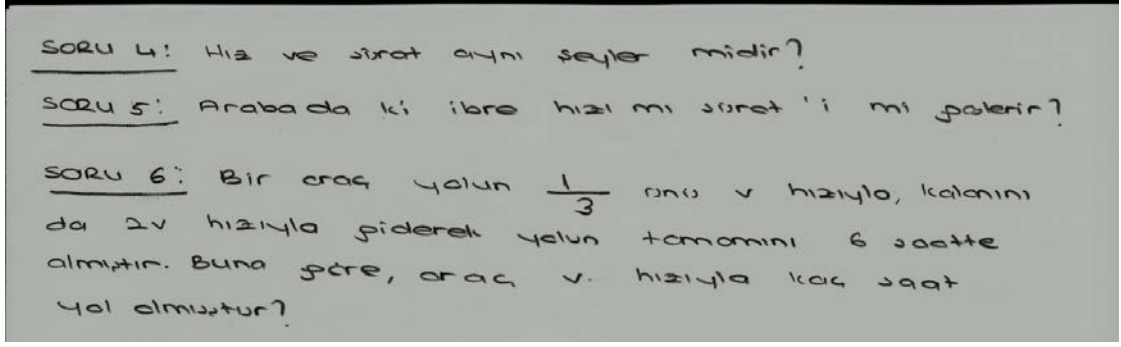 SORU 4: Hız ve sürat aynı şeyler midir?
SORU 5: Arabada ki ibre hızı mı sürat'i mi gösterir?
SORU 6: Bir araç yolun 1/3 ünü v hızıyla, kalanını
da 2v hızıyla giderek yolun tamamını 6 saatte
almıştır. Buna göre, araç v. hızıyla kaç saat
yol almıştur?